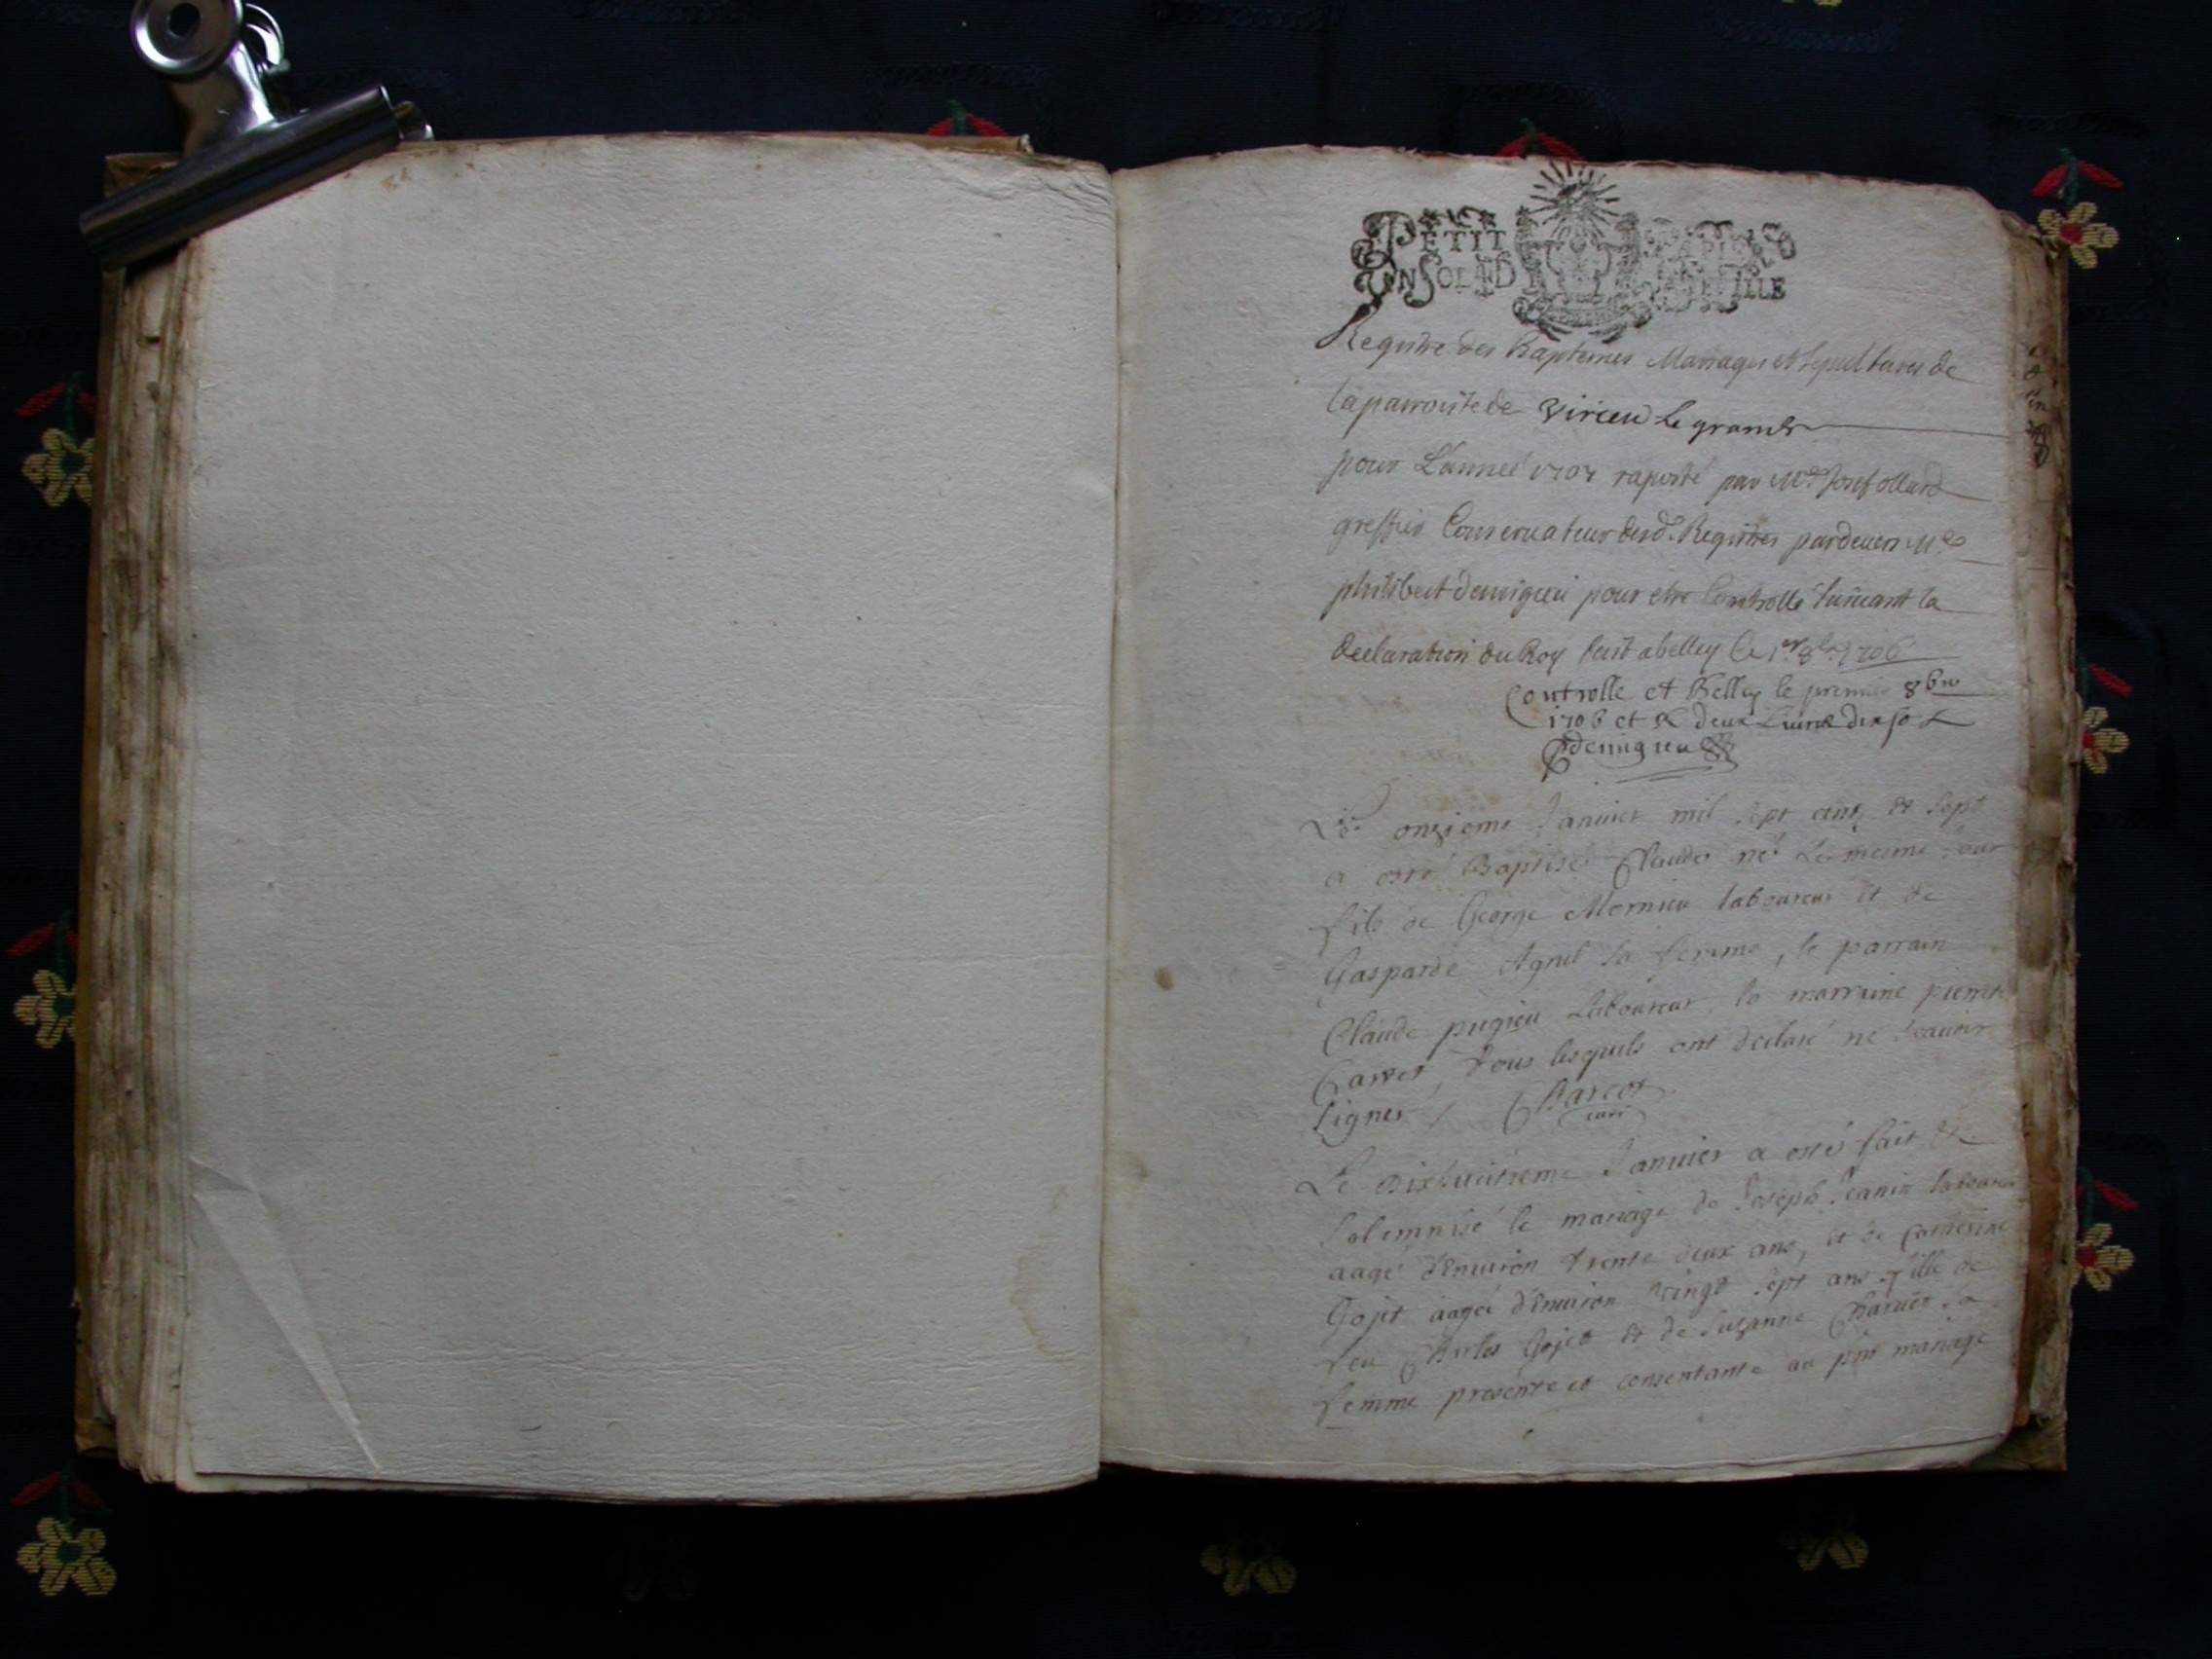 PETIT PAPIER
UN SOL 4 D LE FEUILLE
Registre des Baptemes Mariages et sepultures de
la parroisse de virieu Le grand
pour L'année 1707 raporté par Me Josef ollard
greffier Conservateur desd. Registres pardevers Me
philibert demigieu pour etre Controllé suivant la
declaration du Roy fait a belley le 1er 8bre 1706
Controlle et Belley le premier 8bre
1706 et R deux Livres dix so
demigieu
Le onzieme Januier mil sept cent et sept
a esté Baptisé Claude né Le mesme Jour
fils de George Mornieu laboureur et de
Gasparde Agnel sa femme, le parrain
Claude pugieu Laboureur, la marraine pierrete
Carrer, tous lesquels ont declaré ne scauoir
signer / Barcot
curé
Le dixhuitieme Januier a esté fait et
solemnisé le mariage de Joseph Janin laboureur
aagé d'enuiron trente deux ans, et de Catherine
Gojet aagée d'enuiron vingt sept ans fille de
feu Charles Gojet et de Suzanne Charuet sa
femme presente et consentante au pnt mariage